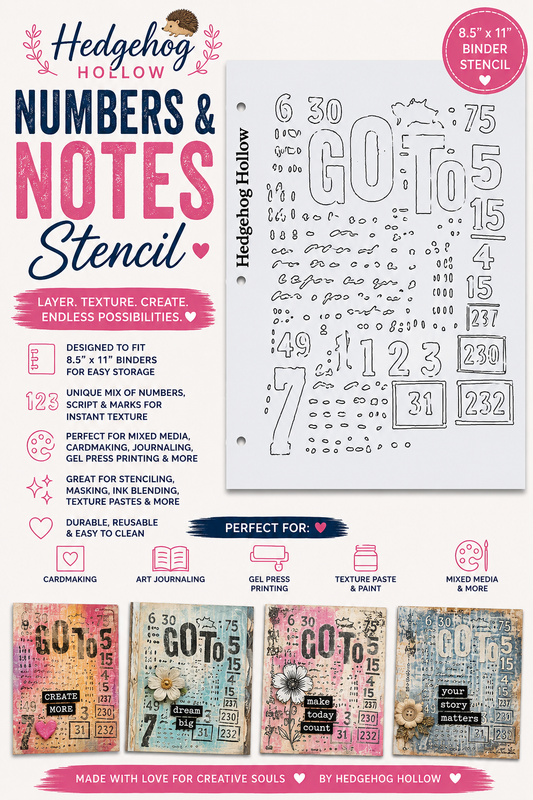 Hedgehog
HOLLOW
NUMBERS &
NOTES
Stencil
LAYER. TEXTURE. CREATE.
ENDLESS POSSIBILITIES.
DESIGNED TO FIT
8.5" x 11" BINDERS
FOR EASY STORAGE
123
UNIQUE MIX OF NUMBERS,
SCRIPT & MARKS FOR
INSTANT TEXTURE
PERFECT FOR MIXED MEDIA,
CARDMAKING, JOURNALING,
GEL PRESS PRINTING & MORE
GREAT FOR STENCILING,
MASKING, INK BLENDING,
TEXTURE PASTES & MORE
DURABLE, REUSABLE
& EASY TO CLEAN
8.5" x 11"
BINDER
STENCIL
Hedgehog Hollow
6 30 75
GO To 5
15
4
15
237
49 1 2 3 230
7 31 232
PERFECT FOR:
CARDMAKING
ART JOURNALING
GEL PRESS
PRINTING
TEXTURE PASTE
& PAINT
MIXED MEDIA
& MORE
6 30 75
GO To 5
15
4
15
237
CREATE
MORE
3 230
7 31 232
6 30 75
GO To 5
15
4
15
237
dream
big
3 230
31 232
6 30 75
GO To 5
15
4
15
237
make
today
count
3 230
31 232
6 30 75
GO To 5
15
4
15
237
your
story
matters
230
31 232
MADE WITH LOVE FOR CREATIVE SOULS BY HEDGEHOG HOLLOW